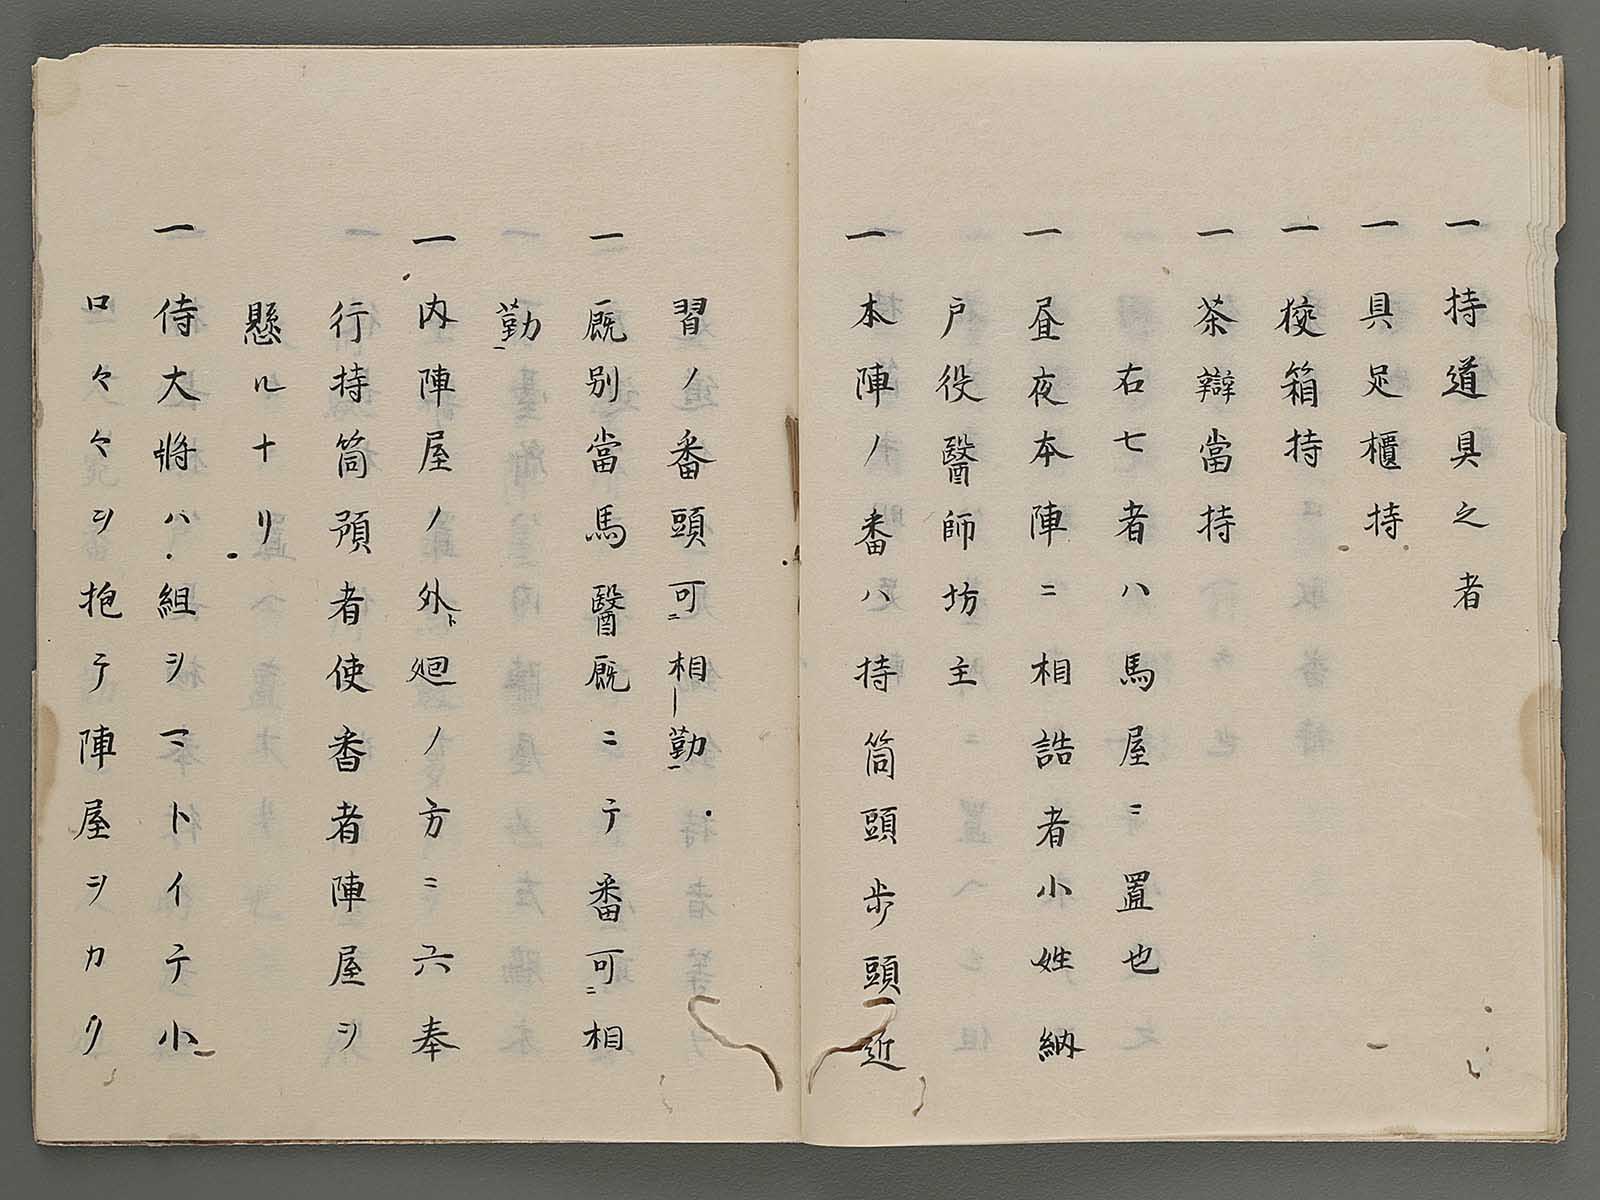 一 持道具之者
一 具足櫃持
一 挍箱持
一 茶辧當持
右七者ハ馬屋ニ置也
一 昼夜本陣ニ相詰者小姓納
戸役醫師坊主
一 本陣ノ番ハ持筒頭歩頭近
習ノ番頭可ニ相勤
一 厩別當馬醫厩ニテ番可ニ相
勤
一 内陣屋ノ外ト廻ノ方ニ六奉
行持筒預者使番者陣屋ヲ
懸ルナリ
一 侍大將ハ組シマトイテ小
口々々ヲ抱テ陣屋ヲカク